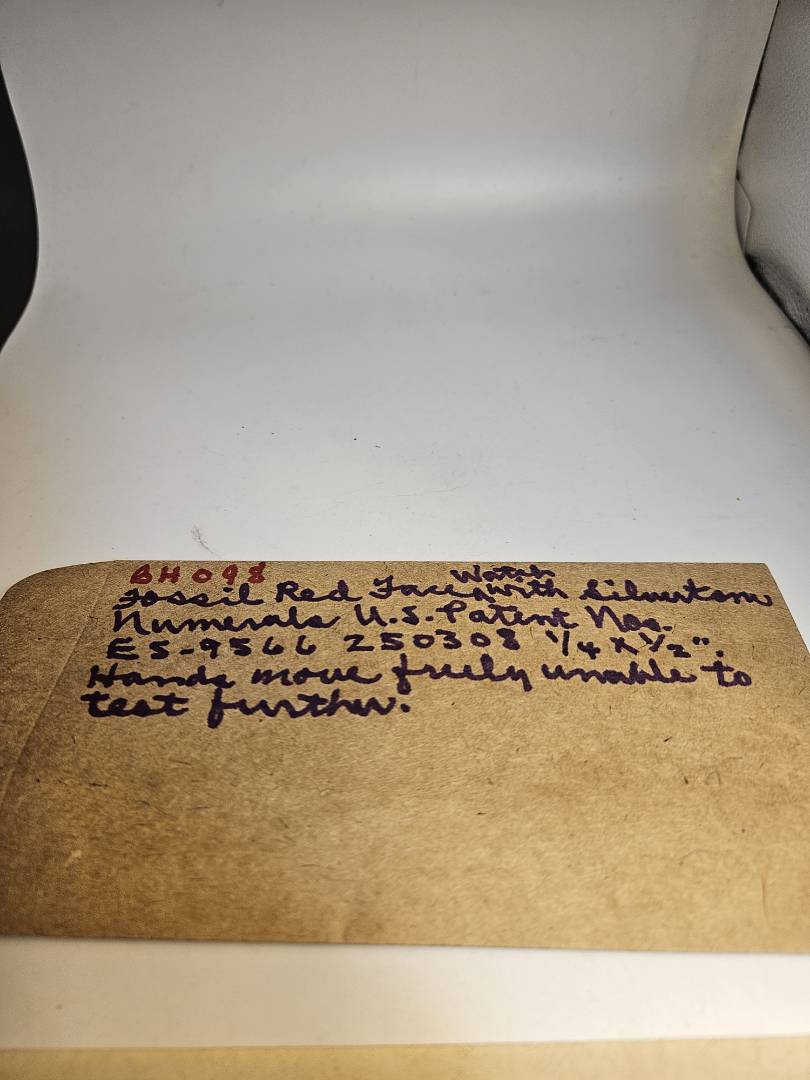 BH098
Fossil Red Face Watch with Silvertone
Numerals U.S. Patent Nos.
ES-9566 250308 1/4 x 1/2".
Hands move freely unable to
test further.